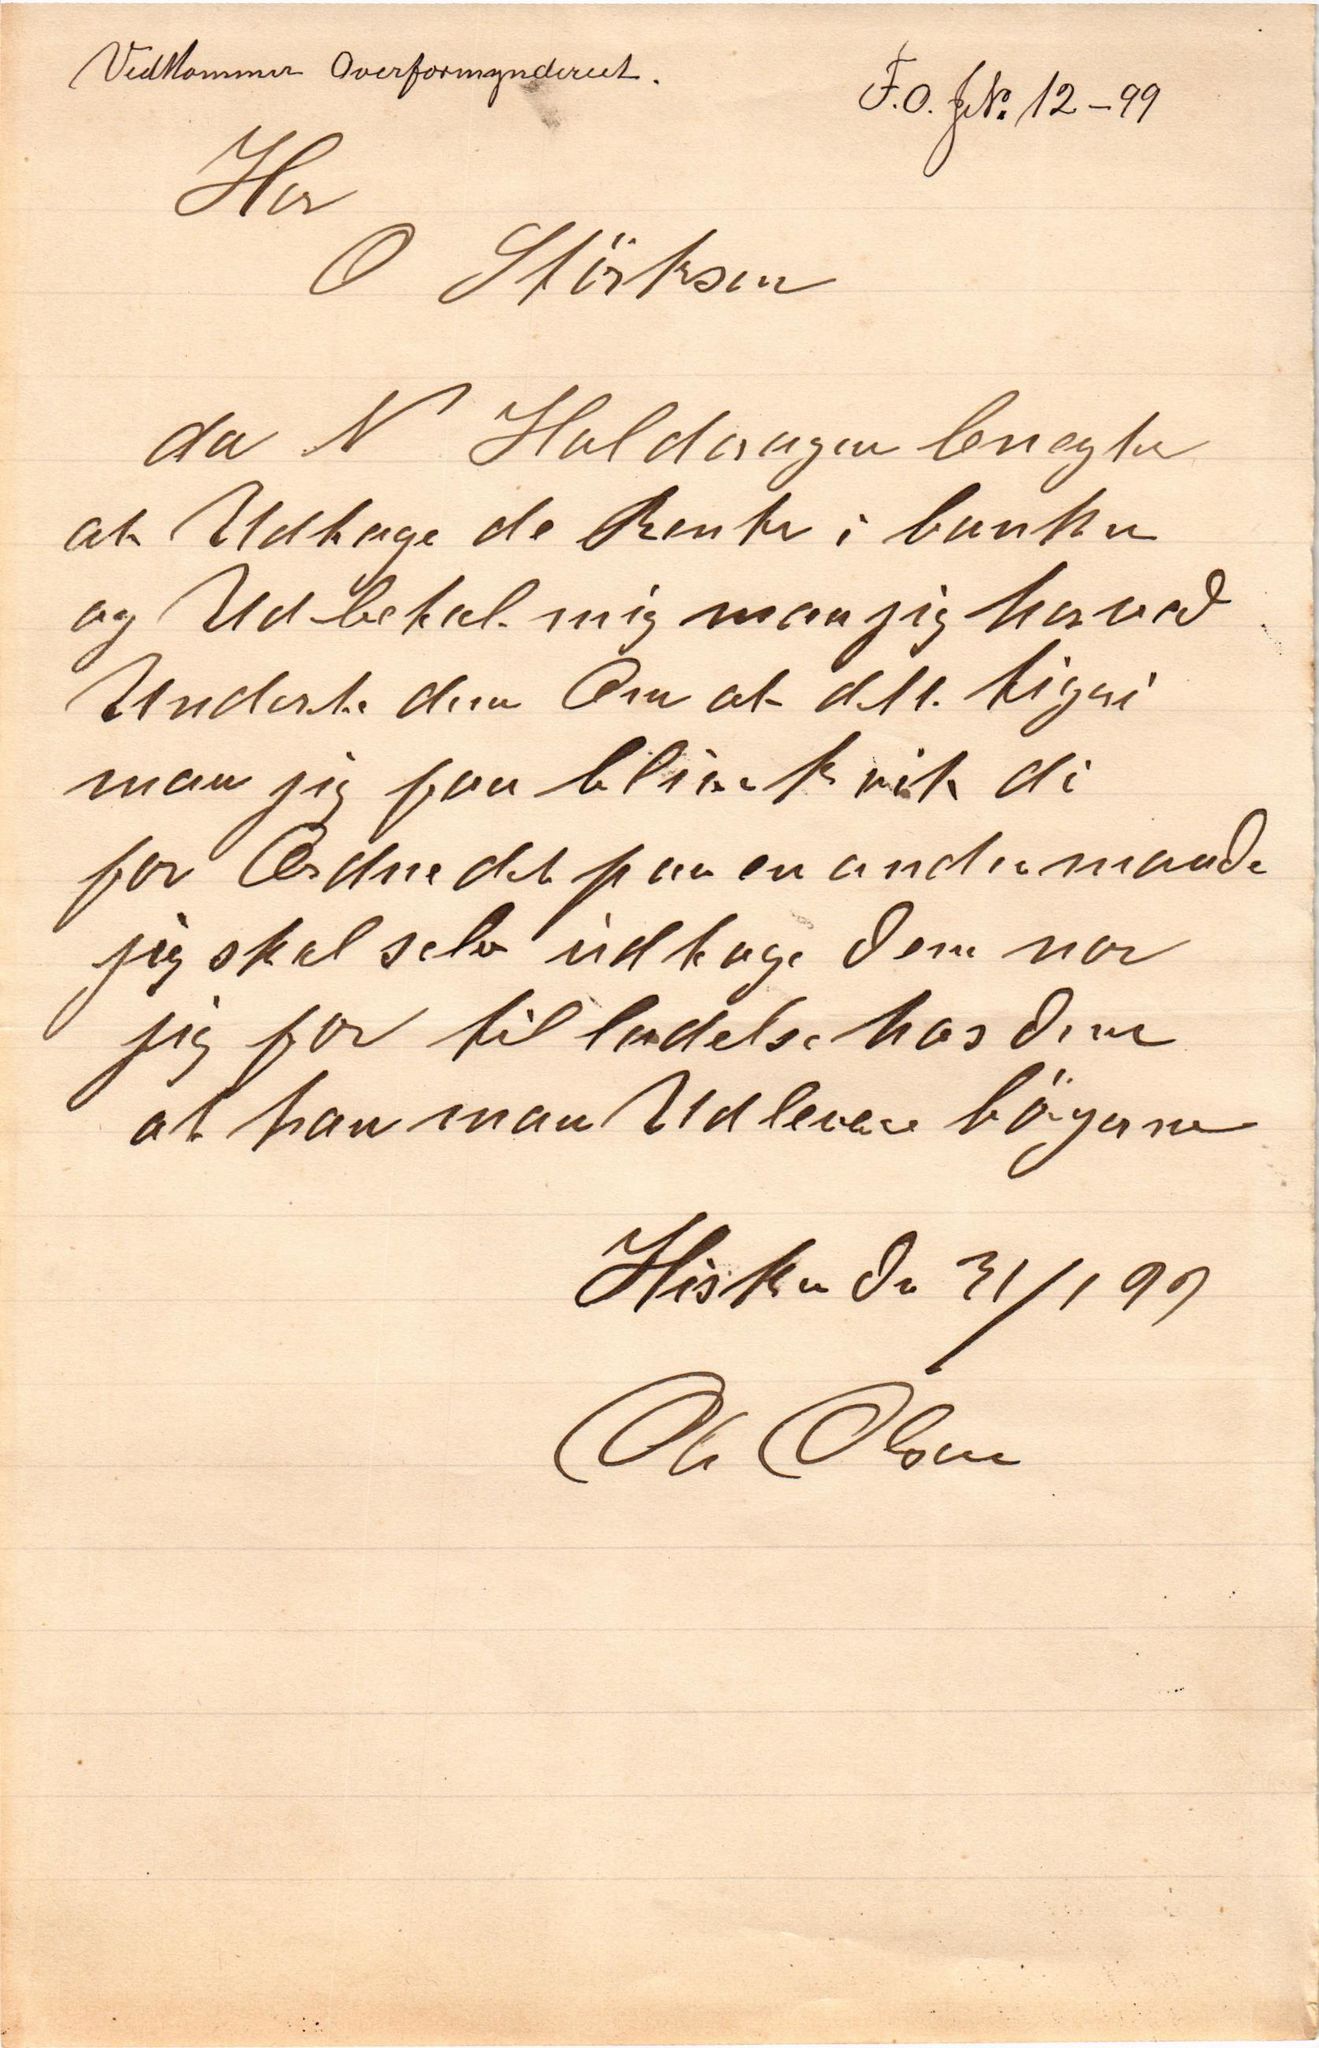 Vedkommer Overformynderiet.
F.O. JNo. 12-99
Her
O Störksen
da N Haldorsen benegter
at Udtage de Renter i banken
og Udbetal. mig maa jig herved
Underte dem Om at dette tigeri
maa jig faa blive kvit di
for Ordne det paa en anden maade
jig skal selv udtage dem nor
jig for til ladelse hos dem
at han maa Udlevere bögerne
Hisken dn 31/1 99
Ole Olsen